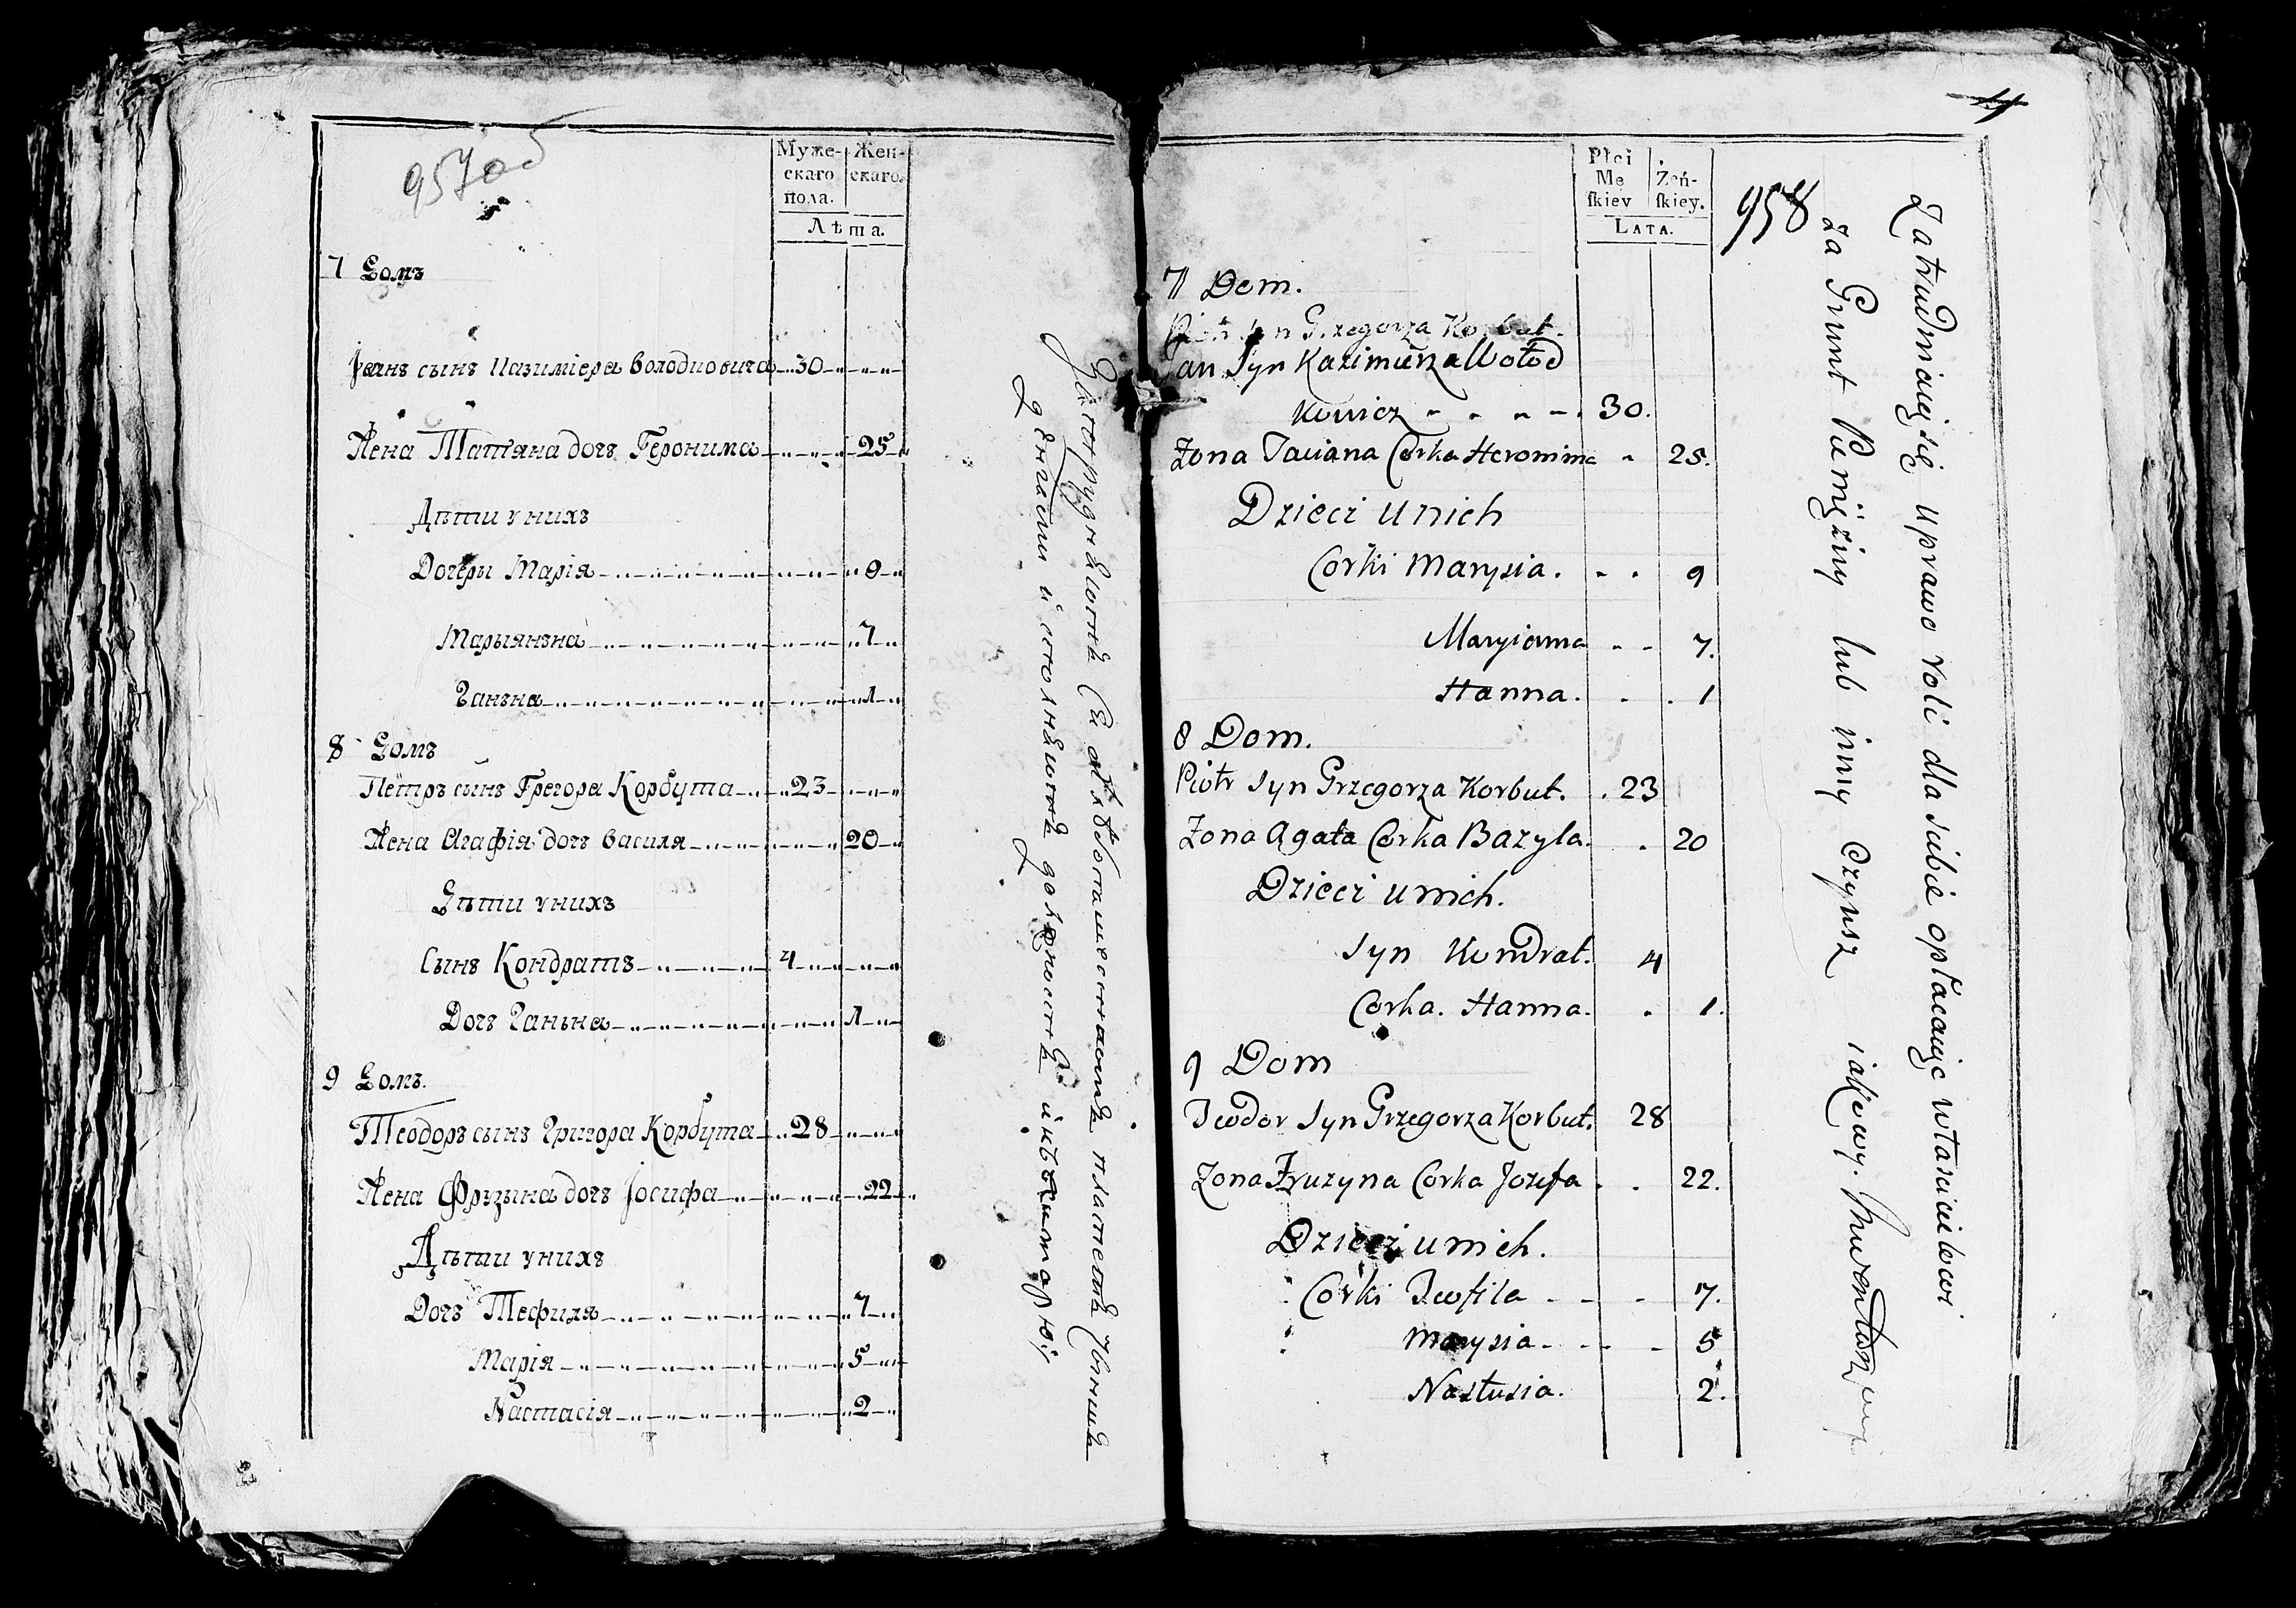 957об
Муже-
скаго
пола.
Жен-
скаго.
Лѣта.
7 Домъ
Іванъ сынъ Казиміера Володковича 30
Жена Татяна дочъ Геронима 25
Дѣти у нихъ
Дочеры Марія 9
Марыянъна 7
Ганъна 1
8 Домъ
Пётръ сынъ Грегора Корбута 23
Жена Агафія дочъ Василя 20
Дѣти у нихъ
Сынъ Кондратъ 4
Дочъ Ганьна 1
9 Домъ.
Теодоръ сынъ Григора Корбута 28
Жена Фрузына дочъ Іосифа 22
Дѣти у нихъ
Дочъ Тефиля 7
Марія 5
Настасія 2
4
958
Płci
Mę
skiey
Żeń-
skiey.
LATA.
7 Dom.
Piotr Syn Grzegorza Korbut
Jan Syn Kazimierza Wołod
kowicz 30.
Zona Taciana Corka Heronima 25.
Dzieci u nich
Corki Marysia. 9
Maryianna 7.
Hanna. 1
8 Dom.
Piotr Syn Grzegorza Korbut. 23
Zona Agata Corka Bazyla. 20
Dzieci u nich.
Syn Kondrat. 4
Corka. Hanna. 1.
9 Dom
Teodor Syn Grzegorza Korbut. 28
Zona Fruzyna Corka Jozefa 22.
Dzieci u nich.
Corki Teofila 7.
Marysia 5
Nastusia. 2.
Zatrudniaią się uprawo roli dla siebie opłacaiąc właścicielowi
za Grunt Pieniężny lub inny Czynsz iakowy.